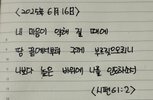 <2025년 6월 16일>
내 마음이 약해 질 때에
땅 끝에서부터 주께 부르짖으오리니
나보다 높은 바위에 나를 인도하소서
(시편 61:2)